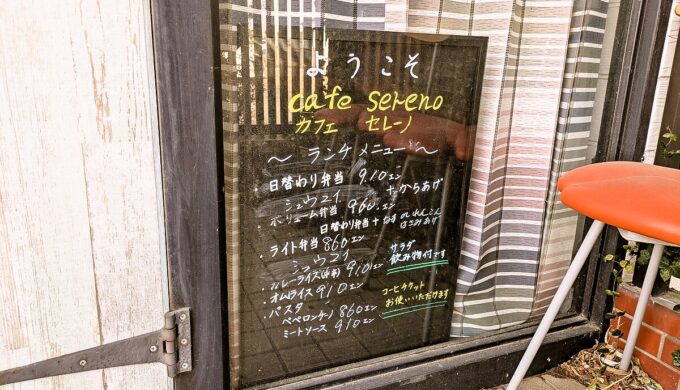 ようこそ
cafe sereno
カフェ セレーノ
～ ランチメニュー ～
・日替わり弁当 910エン
シュウマイ
+からあげ
・ボリューム弁当 960エン
日替わり弁当+なす or れんこん
はさみあげ
・ライト弁当 860エン
シュウマイ
・カレーライス 910エン
・オムライス 910エン
・パスタ
ペペロンチーノ 860エン
ミートソース 910エン
サラダ
飲み物付です
コーヒーチケット
お使いいただけます